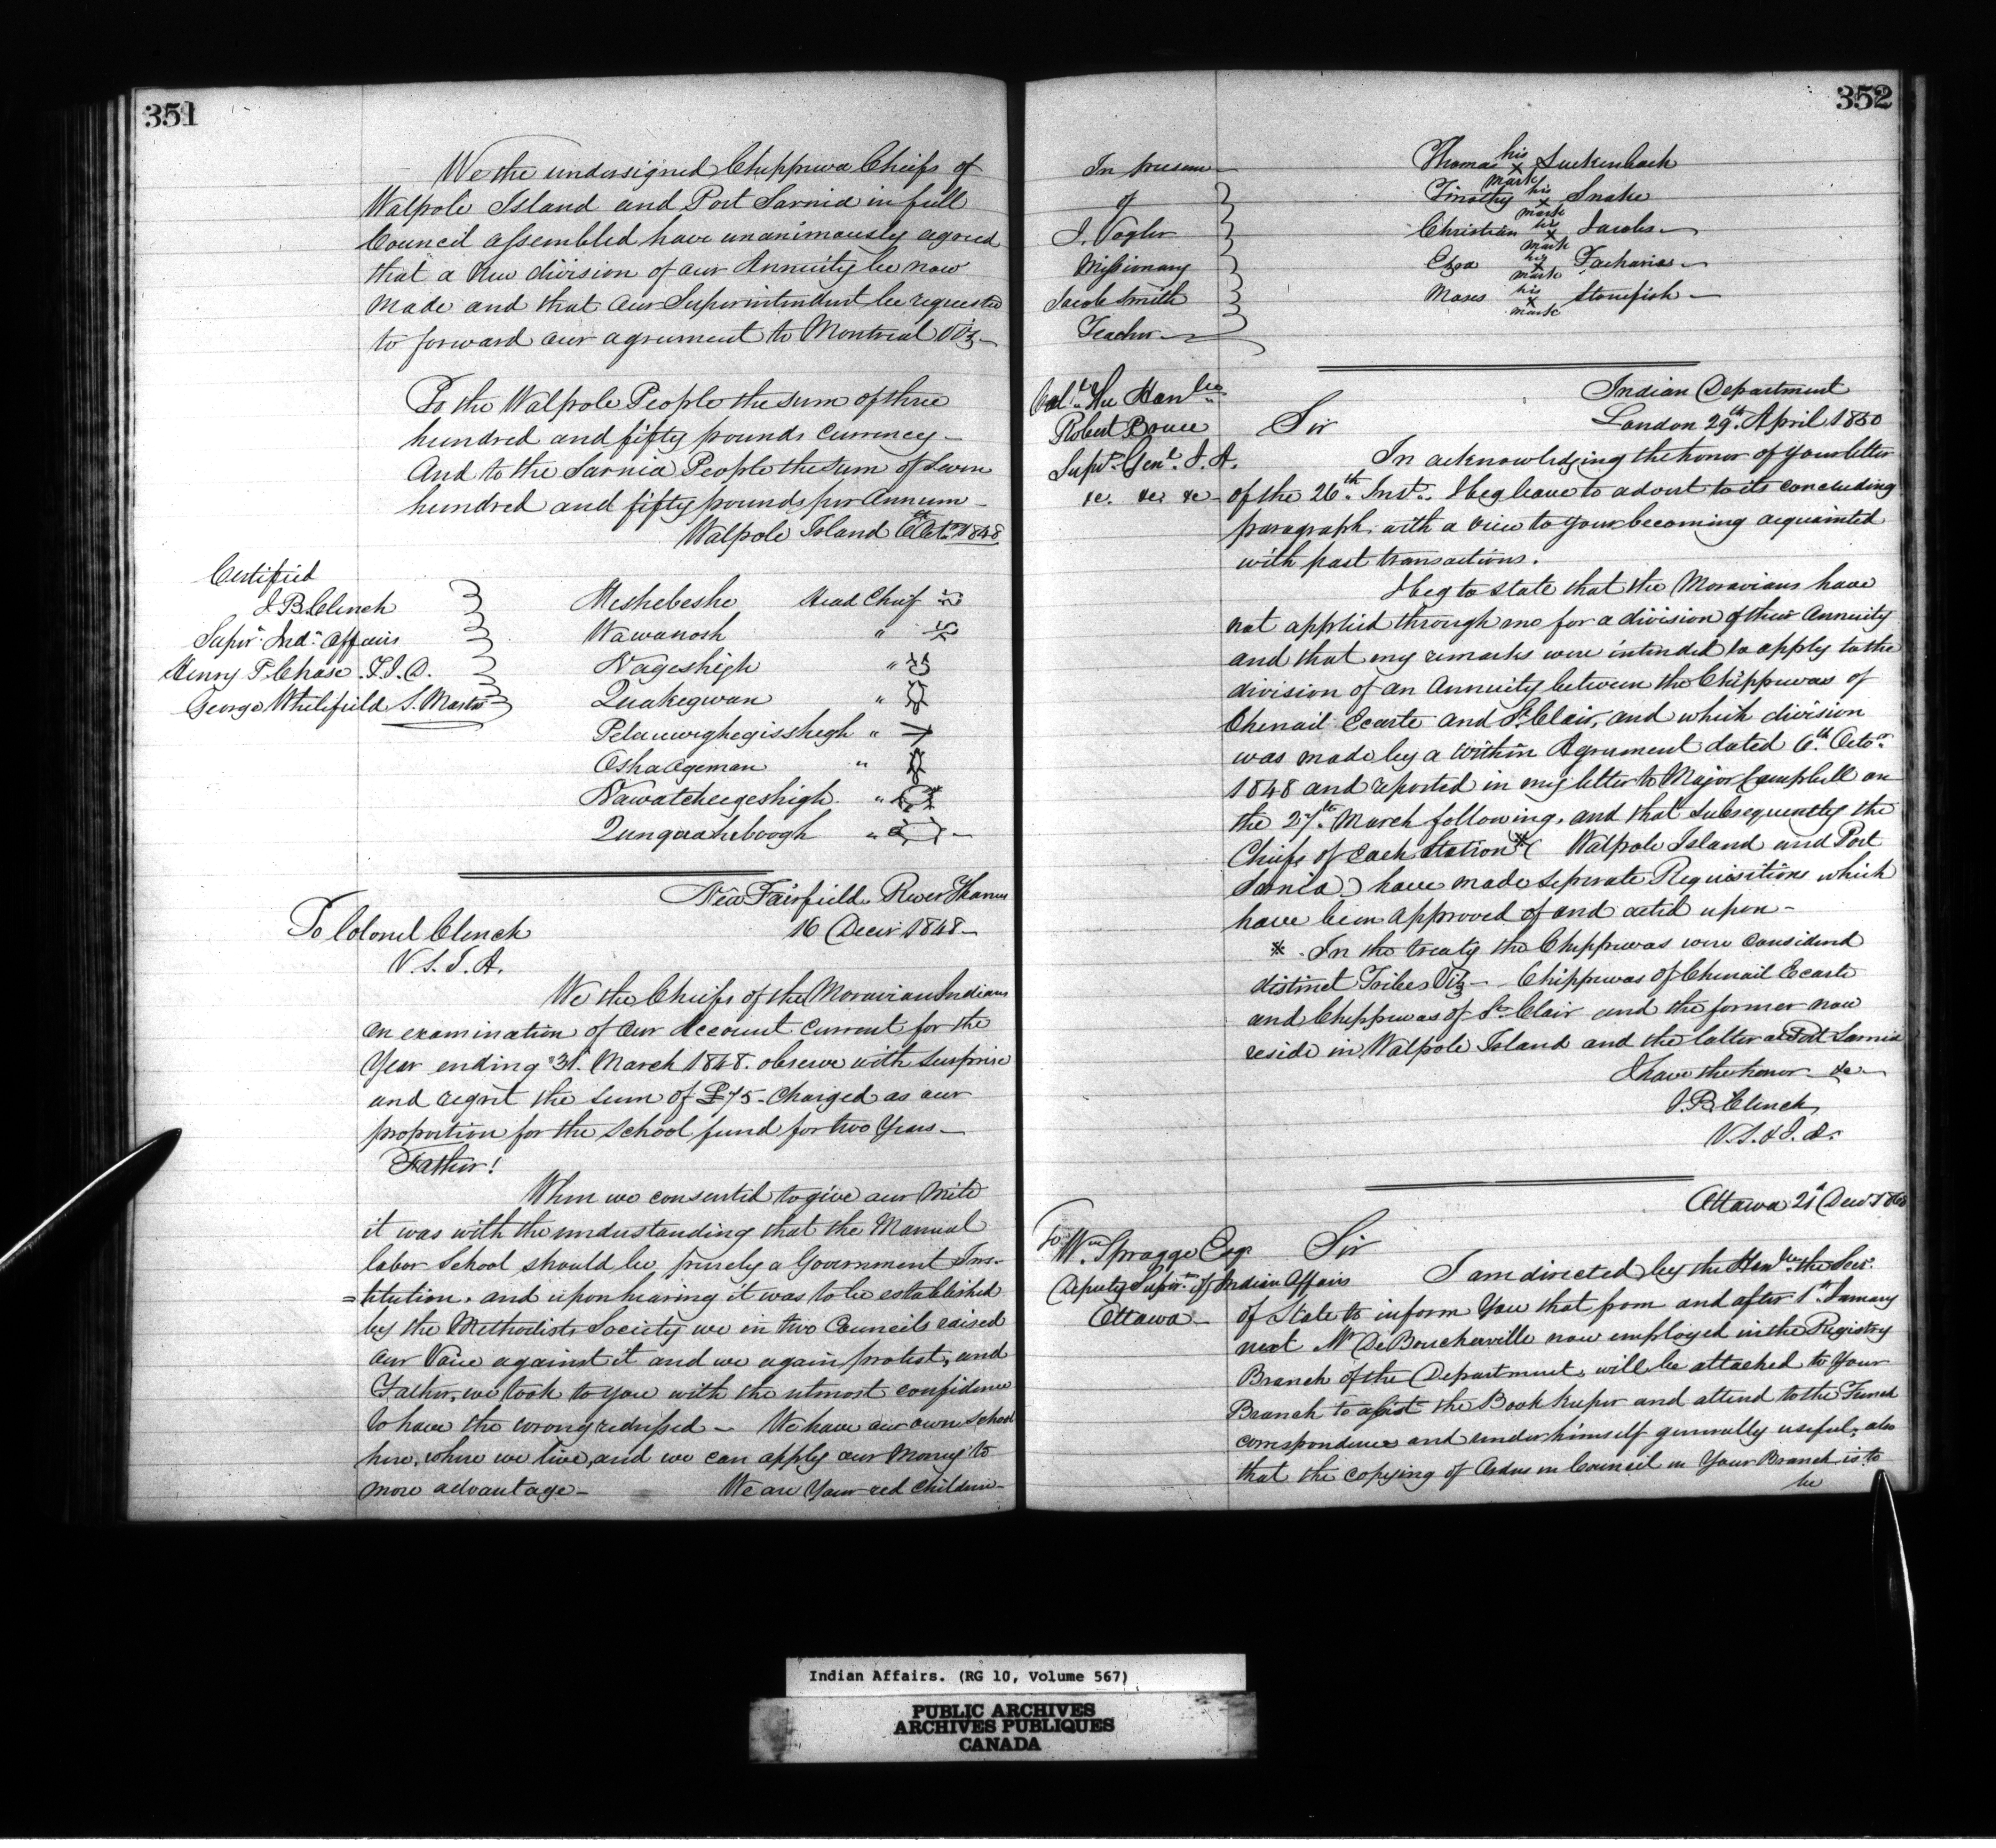 351
We the undersigned Chippewa Chiefs of
Walpole Island and Port Sarnia in full
Council assembled have unanimously agreed
that a New division of our Annuity be now
made and that our Superintendent be requested
to forward our agreement to Montreal Viz
To the Walpole People the sum of three
hundred and fifty pounds Currency
And to the Sarnia People the sum of seven
hundred and fifty pounds per Annum
Walpole Island 6th Octr 1848
Certified
J B Clench
Supert Indn Affairs
Henry P. Chase. I. I. D.
George Whitifield S. Master
Meshebeshe Head Chief
Wawanosh "
Nageshigh "
Quakegwan "
Petauwighegisshegh "
Osha ogeman "
Nawatcheegeshigh "
Qunquaheboogh "
New Fairfield River Thames
16 Decr 1848
To Colonel Clench
V. S. I. A.
We the Chiefs of the Moravian Indians
on examination of our Account Current for the
Year ending 31st March 1848. observe with surprise
and regret the sum of £75 - Charged as our
proportion for the School fund for two Years
Father!
When we consented to give our Mite
it was with the understanding that the Manual
labor School should be purely a Government Ins-
=titution. and upon hearing it was to be established
by the Methodists Society we in two Councils raised
our Voice against it and we again protest, and
Father, we look to you with the utmost confidence
to have the wrong redressed - We have our own School
here, where we live, and we can apply our Money to
more advantage - We are Your red Children -
352
In presence
of
J. Vogler
Missionary
Jacob Smith
Teacher
Thomas his x mark Luckenbach
Timothy his x mark Snake
Christian his x mark Jacobs
Ezra his x mark Zacharias
Moses his x mark Stonefish
Indian Department
London 29th April 1850
Coll The Honble
Robert Bruce
Supt Genl I. A.
&c. &c. &c
Sir
In acknowledging the honor of your letter
of the 26th Inst. I beg leave to advert to its concluding
paragraph. with a view to your becoming acquainted
with past transactions.
I beg to state that the Moravians have
not applied through me for a division of their Annuity
and that my remarks were intended to apply to the
division of an Annuity between the Chippewas of
Chenail Ecarte and St Clair, and which division
was made by a within Agreement dated 6th Octor
1848 and reported in my letter to Major Campbell on
the 27th March following, and that subsequently the
Chiefs of each Station * ( Walpole Island and Port
Sarnia ) have made seperate Requisitions which
have been approved of and acted upon -
* In the treaty the Chippewas were considered
distinct Tribes Viz - Chippewas of Chenail Ecarte
and Chippewas of St Clair and the former now
reside in Walpole Island and the latter at Port Sarnia
I have the honor &c
J. B. Clench
V. S. & I. A.
Ottawa 21st Decr
To Wm Spragge Esqr
Deputy Supert of Indian Affairs
Ottawa
Sir
I am directed by the Honble the Secy
of State to inform You that from and after 1st January
next Mr De Boucherville now employed in the Registry
Branch of the Department, will be attached to Your
Branch to assist the Book Keeper and attend to the French
correspondence and render himself generally useful; also
that the copying of Orders in Council in Your Branch is to
be
Indian Affairs. (RG 10, Volume 567)
PUBLIC ARCHIVES
ARCHIVES PUBLIQUES
CANADA